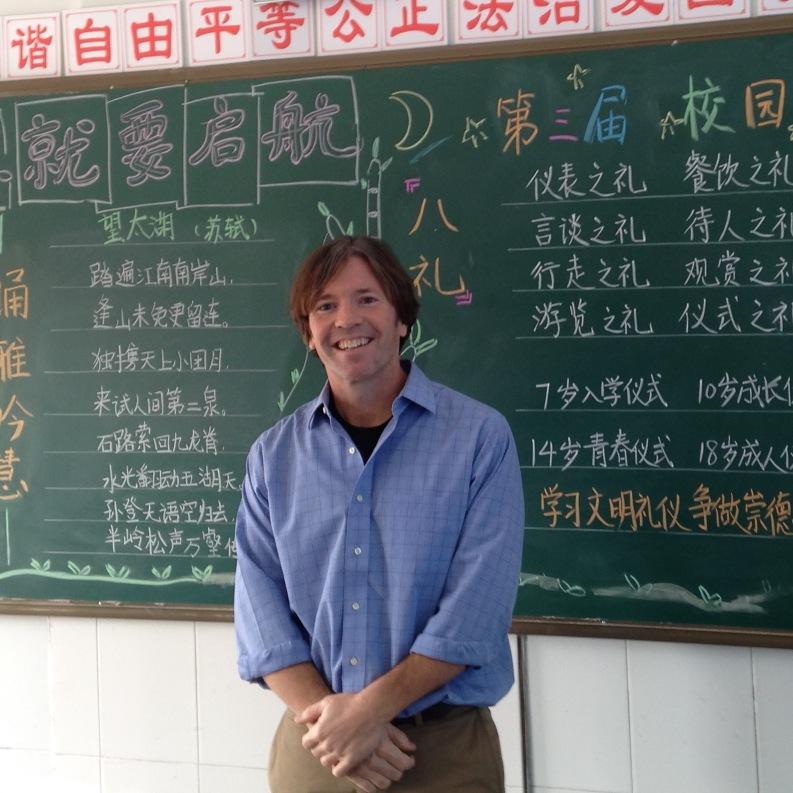 谐 自由 平等 公正 法治 爱国
就要启航
望太湖（苏轼）
踏遍江南南岸山，
逢山未免更留连。
独携天上小团月，
来试人间第二泉。
石路萦回九龙脊，
水光翻动五湖天
孙登无语空归去，
半岭松声万壑
诵雅吟慧
第三届 校园
『八礼』
仪表之礼 餐饮之礼
言谈之礼 待人之礼
行走之礼 观赏之礼
游览之礼 仪式之礼
7岁入学仪式 10岁成长仪
14岁青春仪式 18岁成人仪
学习文明礼仪 争做崇德